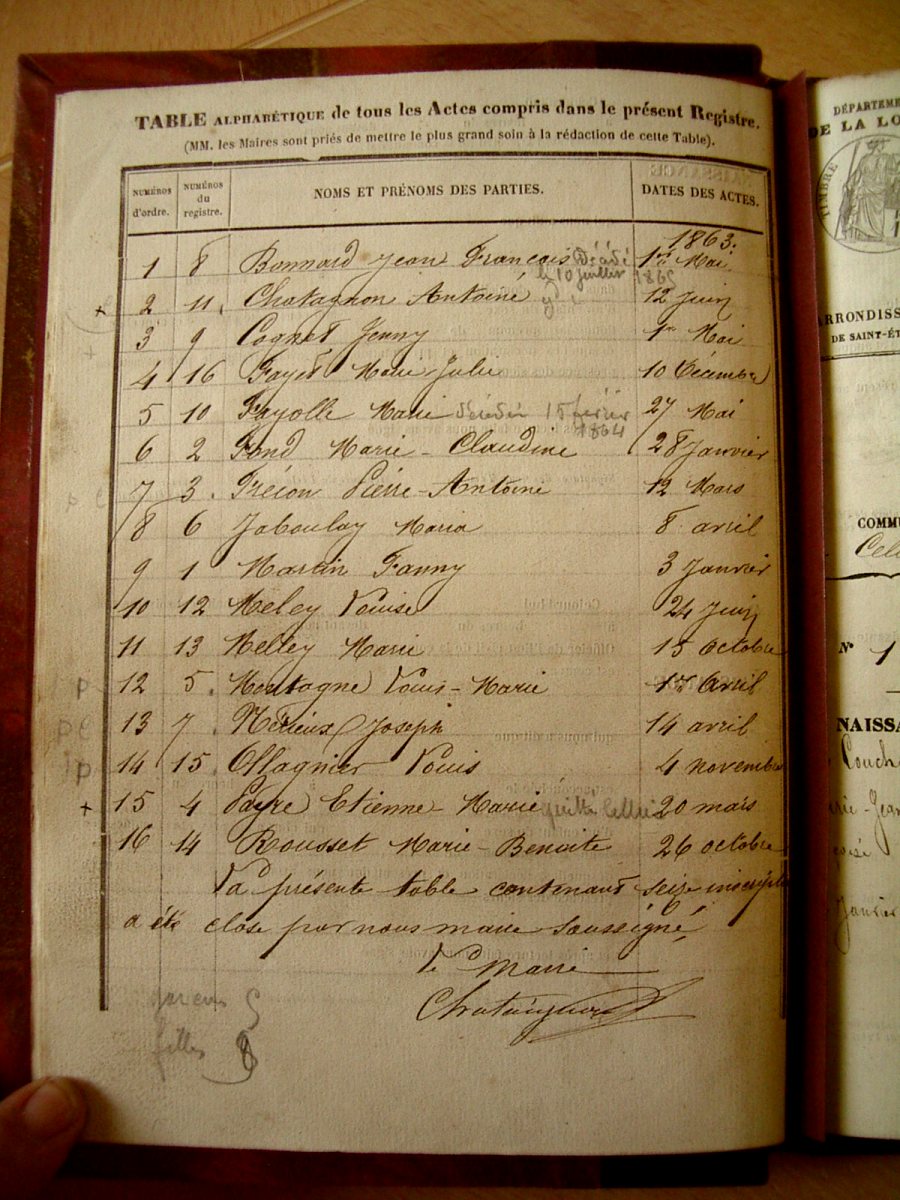 TABLE ALPHABÉTIQUE de tous les Actes compris dans le présent Registre.
(MM. les Maires sont priés de mettre le plus grand soin à la rédaction de cette Table).
NUMÉROS d'ordre. NUMÉROS du registre. NOMS ET PRÉNOMS DES PARTIES. DATES DES ACTES.
1863.
1 8 Bonnard Jean François Décédé 1er Mai
le 10 juillet 1865
+ 2 11. Chatagnon Antoine 12 Juin
3 9 Cognet Jenny 1er Mai
4 16 Fayet Marie Julie 10 Décembre
5 10 Fayolle Marie décédée 15 février 27 Mai
1864
6 2 Fond Marie-Claudine 28 Janvier
7 3. Frécon Pierre-Antoine 12 Mars
8 6 Jaboulay Maria 8 avril
9 1 Martin Fanny 3 Janvier
10 12 Meley Louise 24 Juin
11 13 Melley Marie 15 Octobre
p 12 5. Montagne Louis-Marie Avril
13 7. Merieux Joseph 14 avril
14 15. Ollagnier Louis 4 novembre
+ 15 4 Payre Etienne-Marie 20 mars
16 14 Rousset Marie-Benoite 26 octobre
La présente table contenant seize
a été close par nous maire soussigné
Le Maire
garcons
filles 8
DÉPARTEME
DE LA LO
TIMBRE
ARRONDISS
DE SAINT-ÉT
COMMU
N° 1
NAISSA
Janvier